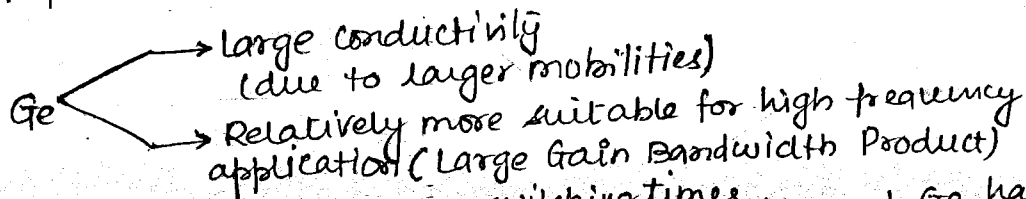 → Large conductivity
(due to larger mobilities)
Ge
→ Relatively more suitable for high frequency
application (Large Gain Bandwidth Product)
times
Ge ha